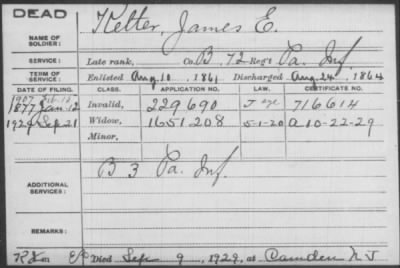 DEAD
NAME OF SOLDIER: Kelter, James E.
SERVICE: Late rank, Co. B, 72 Reg't Pa. Inf.
TERM OF SERVICE: Enlisted Aug. 10, 1861 Discharged Aug. 24, 1864
DATE OF FILING. CLASS. APPLICATION NO. LAW. CERTIFICATE NO.
1907 Feb. 12
1877 Jan. 12 Invalid, 229690 J 716614
1929 Sep 21 Widow, 1651208 5-1-20 A 10-22-29
Minor,
ADDITIONAL SERVICES: B 3 Pa. Inf.
REMARKS:
Died Sep. 9, 1929, at Camden N J